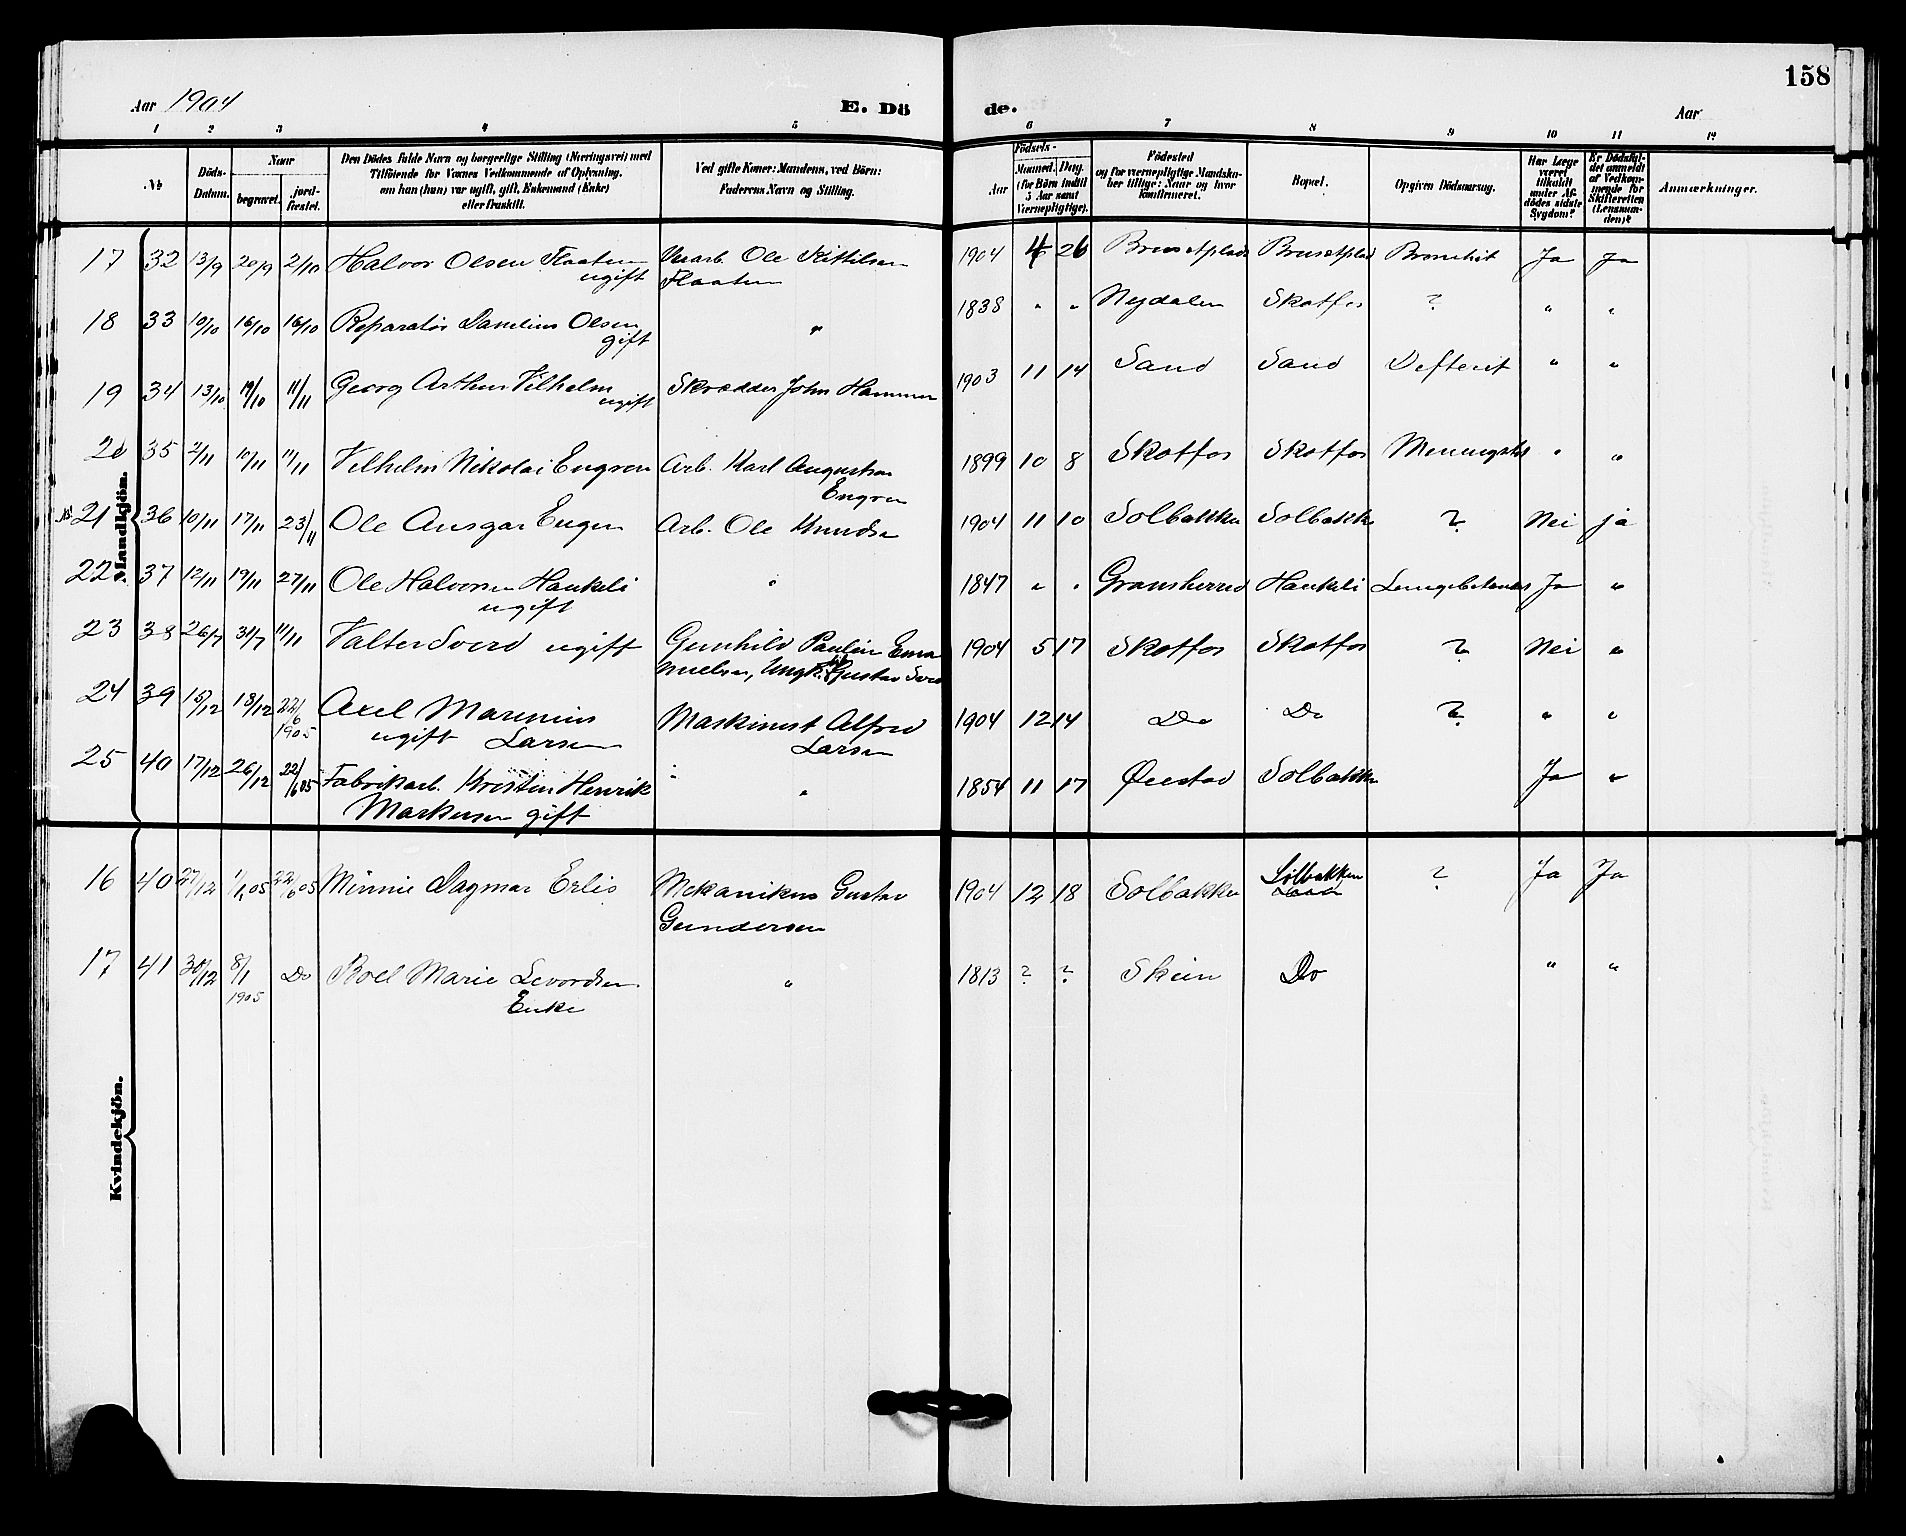 158
Aar 1904 E. Dö de. Aar
1 2 3 4 5 6 7 8 9 10 11 12
№ Döds-Datum. Naar begravet. jordfæstet. Den Dödes fulde Navn og borgerlige Stilling (Næringsvei) med Tilföiende for Voxnes Vedkommende af Oplysning, om han (hun) var ugift, gift, Enkemand (Enke) eller fraskilt. Ved gifte Koner: Mandens, ved Börn: Faderens Navn og Stilling. Födsels- Aar Maaned. Dag. (for Börn indtil 5 Aar samt Værnepligtige). Födested og for værnepligtige Mandskaber tillige: Naar og hvor konfirmeret. Bopæl. Opgiven Dödsaarsag. Har Læge været tilkaldt under Afdödes sidste Sygdom? Er Dödsfaldet anmeldt af Vedkommende for Skifteretten (Lensmanden)? Anmærkninger.
Mandkjön.
17 32 13/9 20/9 2/10 Halvor Olsen Flaaten ugift Ole Kittilsen Flaaten 1904 4 26 Brusetplads Brusetplad Bronchit Ja Ja
18 33 10/10 16/10 16/10 Reparatör Danelius Olsen gift " 1838 " " Nydalen Skotfos ? " "
19 34 13/10 19/10 11/11 Georg Arthur Vilhelm ugift Skrædder John Hammer 1903 11 14 Sand Sand Defterit " "
20 35 2/11 10/11 11/11 Vilhelm Nikolai Engren Arb. Karl Augustsen Engren 1899 10 8 Skotfos Skotfos " "
21 36 10/11 17/11 23/11 Ole Ansgar Eugen Arb. Ole Knudsen 1904 11 10 Solbakken Solbakken ? Nei ja
22 37 12/11 19/11 27/11 Ole Halvorsen Haukeli ugift " 1847 " " Gransherred Haukeli Ja "
23 38 26/7 31/7 11/11 Valter Sverd ugift Gunhild Paulin Emanuelsen, Ungk. Gustav Sverd 1904 5 17 Skotfos Skotfos ? Nei "
24 39 15/12 18/12 22/6 1905 Axel Marenius Larsen ugift Maskinist Alfred Larsen 1904 12 14 Do Do ? " "
25 40 17/12 26/12 22/6 05 Fabrikarb. Kristin Henrik Markusen gift " 1854 11 17 Øiestad Solbakken Ja "
Kvindekjön.
16 40 27/12 1/1 05 22/6 05 Minnie Dagmar Erlis Mekanikus Gustav Gundersen 1904 12 18 Solbakken Solbakken ? Ja Ja
17 41 30/12 8/1 1905 Do Boel Marie Sevordsen Enke " 1813 ? ? Skien Do " "